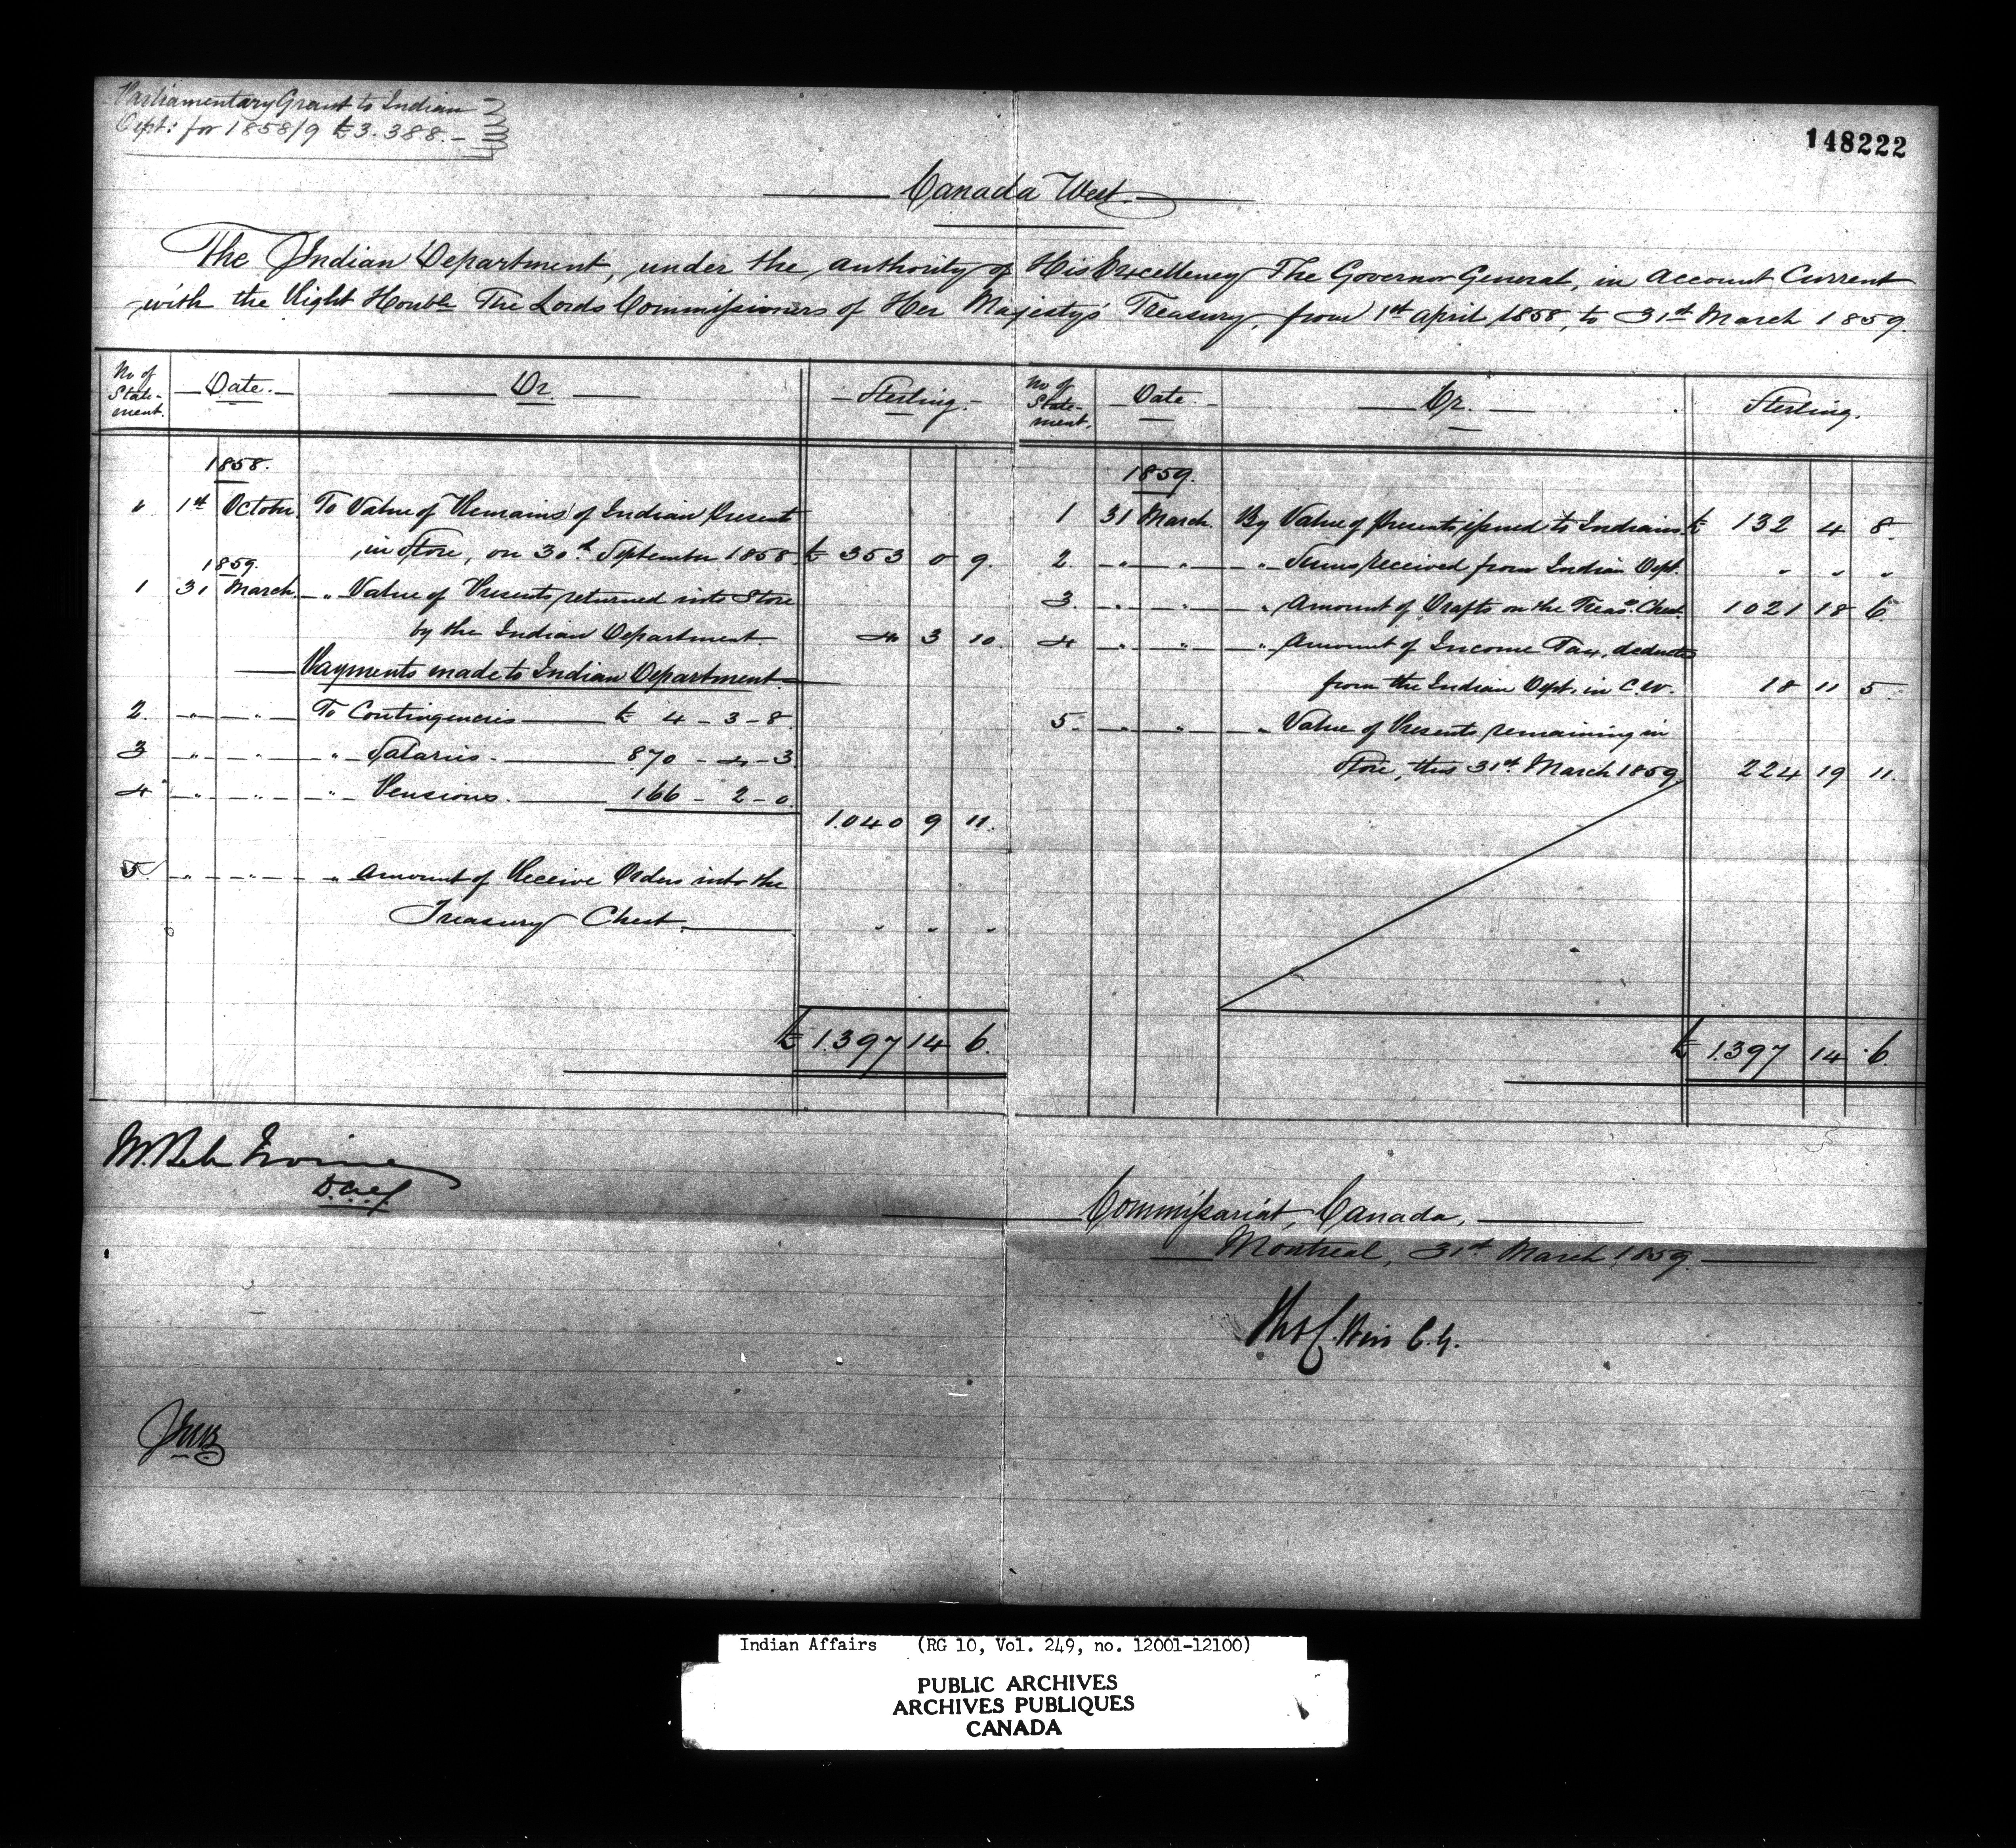 Parliamentary Grant to Indian
Dept: for 1858/9 £3.388.-
148222
Canada West.
The Indian Department, under the authority of His Excellency The Governor General, in Account Current
with the Right Honble The Lords Commissioners of Her Majesty's Treasury, from 1st April 1858, to 31st March 1859.
No of Statement. Date. Dr. Sterling.
1858.
" 1st October. To Value of Remains of Indian Present
in Store, on 30th September 1858 £ 353 0 9.
1859.
1 31 March. " Value of Presents returned into Store
by the Indian Department 4 3 10.
Payments made to Indian Department
2. " " To Contingencies £ 4-3-8
3 " " " Salaries. 870-4-3
4 " " " Pensions. 166-2-0
1.040 9 11.
5. " " " Amount of Receive Orders into the
Treasury Chest. " " "
£ 1.397 14 6.
No of Statement. Date. Cr. Sterling.
1859.
1 31 March. By Value of Presents issued to Indians. £ 132 4 8.
2. " " " Sums received from Indian Dept. " " "
3. " " " Amount of Drafts on the Treasy. Chest. 1021 18 6.
4 " " " Amount of Income Tax, deducted
from the Indian Dept. in C.W. 18 11 5.
5. " " " Value of Presents remaining in
Store, this 31st March 1859, 224 19 11.
£ 1.397 14 6.
Irvine
D.C.G.
Commissariat, Canada,
Montreal, 31st March 1859.
C.G.
Indian Affairs (RG 10, Vol. 249, no. 12001-12100)
PUBLIC ARCHIVES
ARCHIVES PUBLIQUES
CANADA